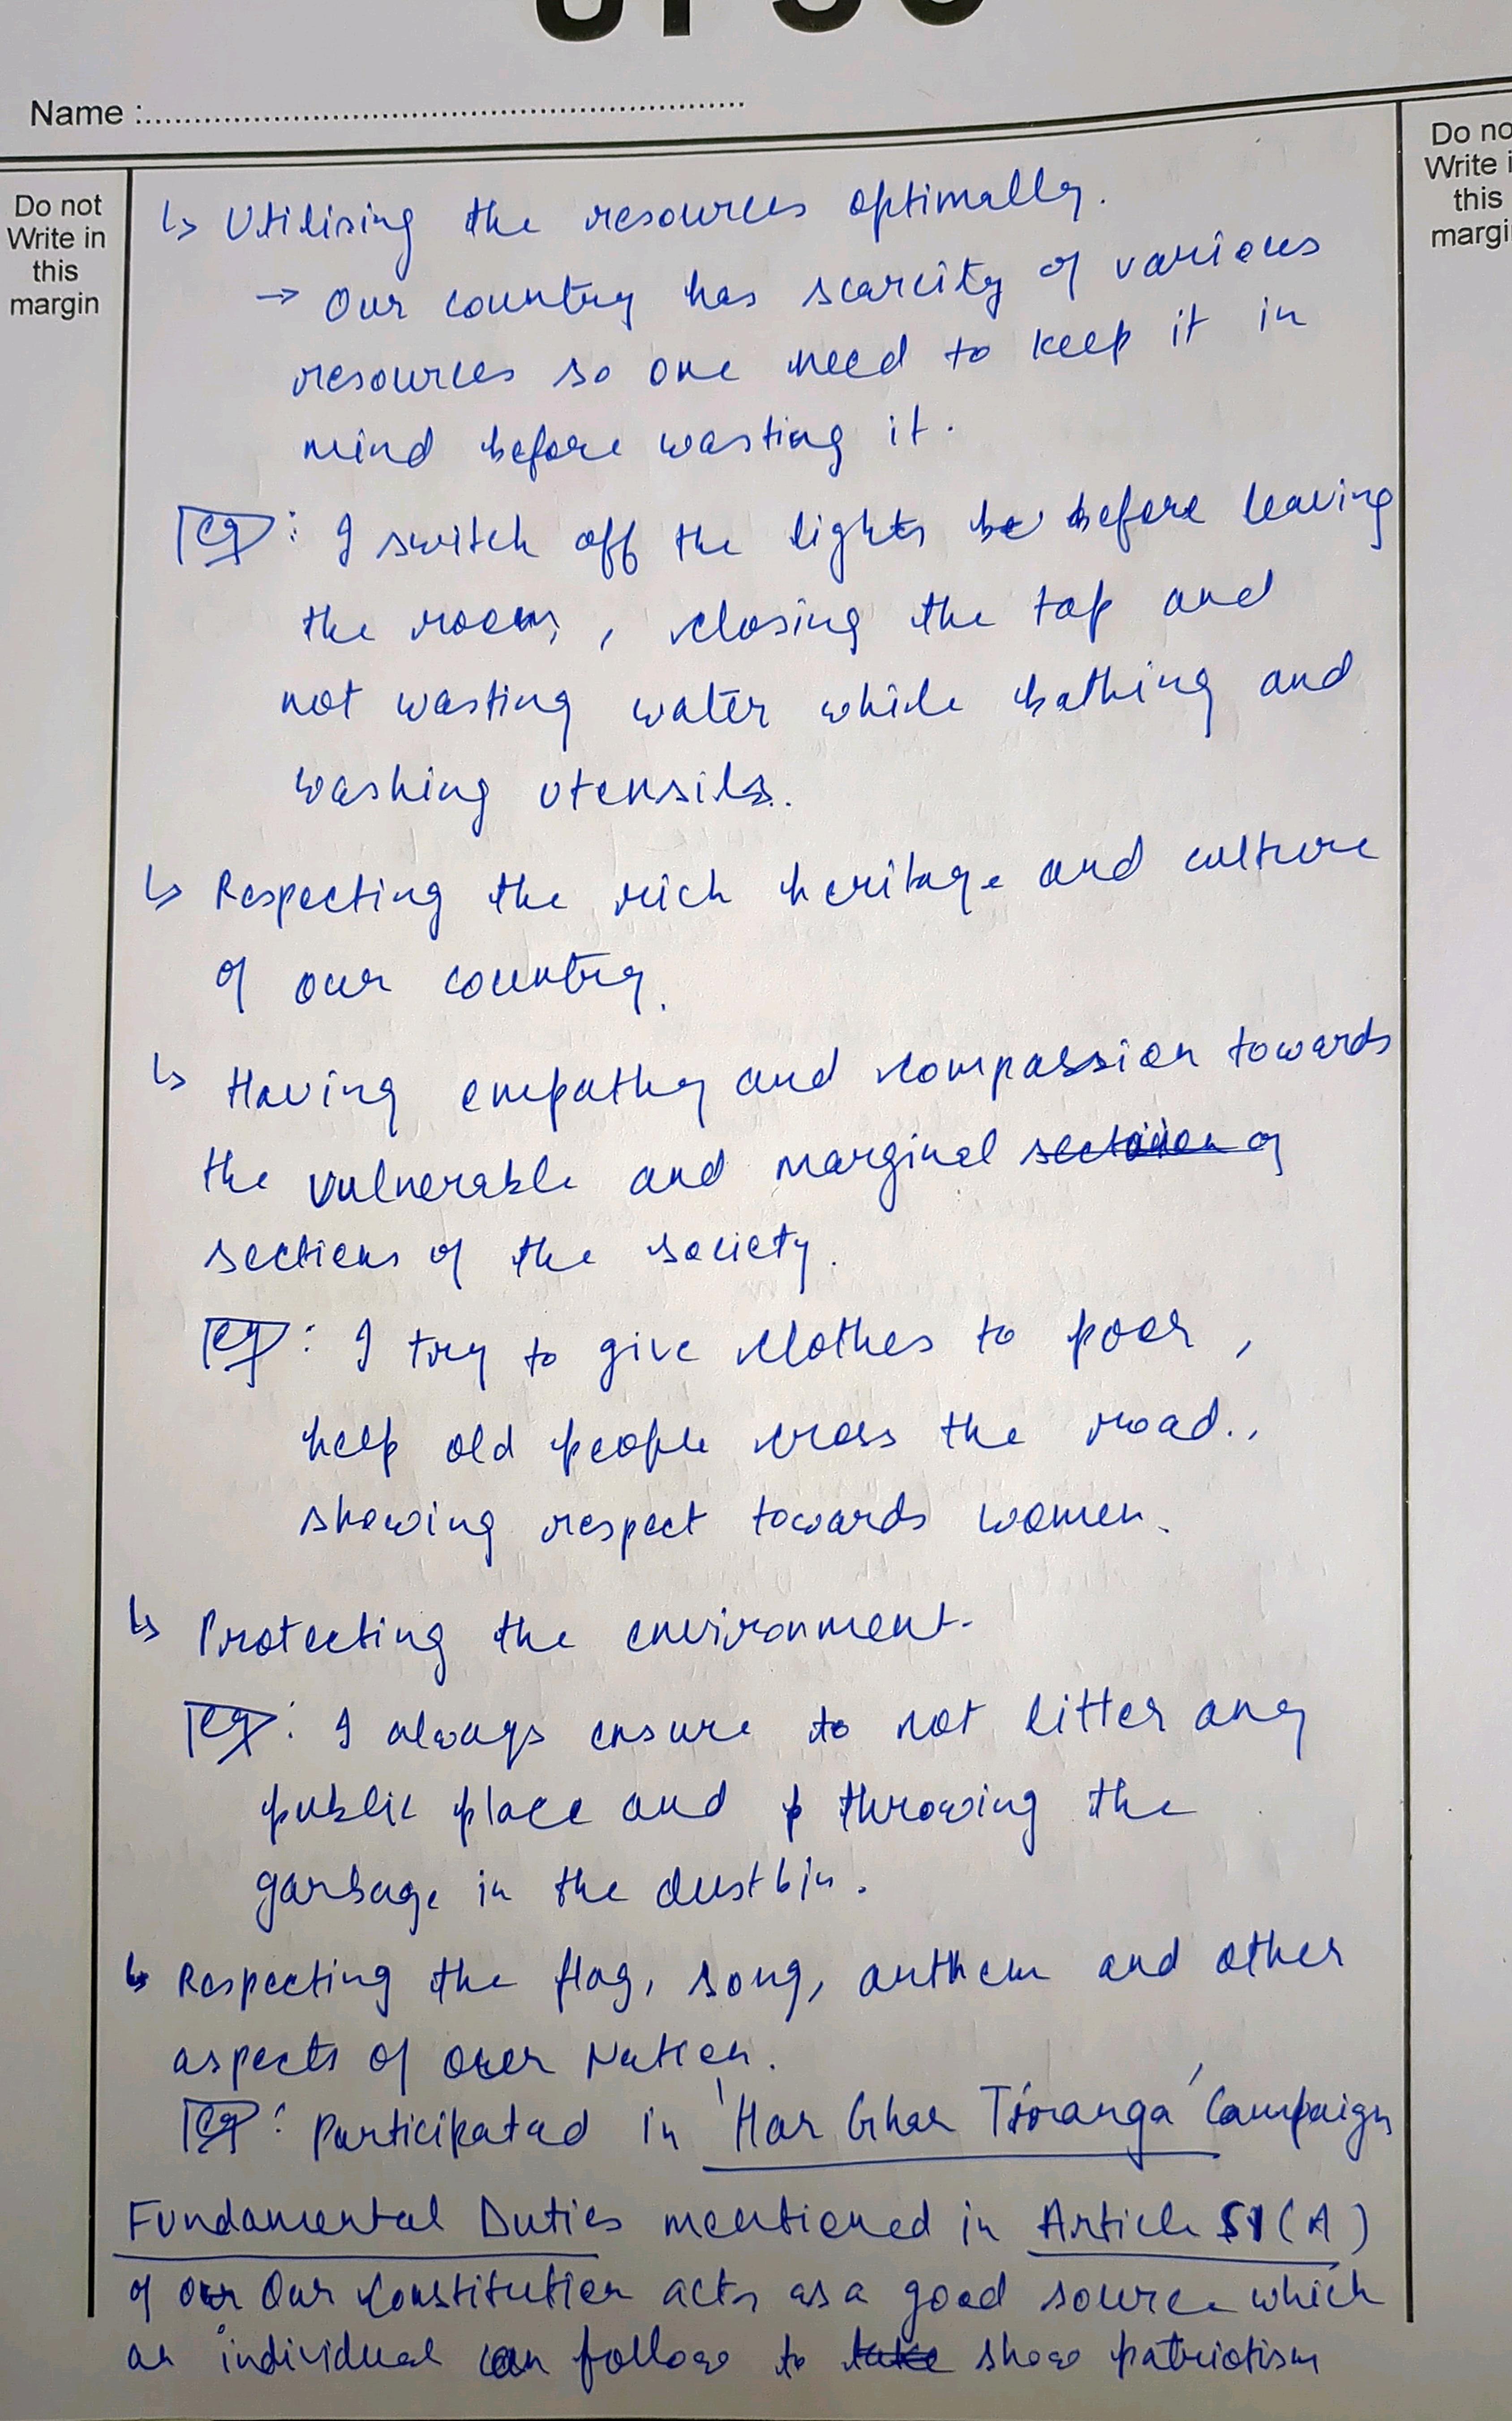 UPSC
Name :
Do not
Write in
this
margin
Do no
Write i
this
margi
↳ Utilising the resources optimally.
→ Our country has scarcity of various
resources so one need to keep it in
mind before wasting it.
eg: I switch off the lights be before leaving
the room, closing the tap and
not wasting water while bathing and
washing utensils.
↳ Respecting the rich heritage and culture
of our country.
↳ Having empathy and compassion towards
the vulnerable and marginal section of
sections of the society.
eg: I try to give clothes to poor,
help old people cross the road.,
showing respect towards women.
↳ Protecting the environment.
eg: I always ensure to not litter any
public place and p throwing the
garbage in the dustbin.
↳ Respecting the flag, song, anthem and other
aspects of our Nation.
eg: Participated in 'Har Ghar Tiranga' Campaign
Fundamental Duties mentioned in Article 51(A)
of our Our Constitution acts as a good source which
an individual can follow to take show patriotism